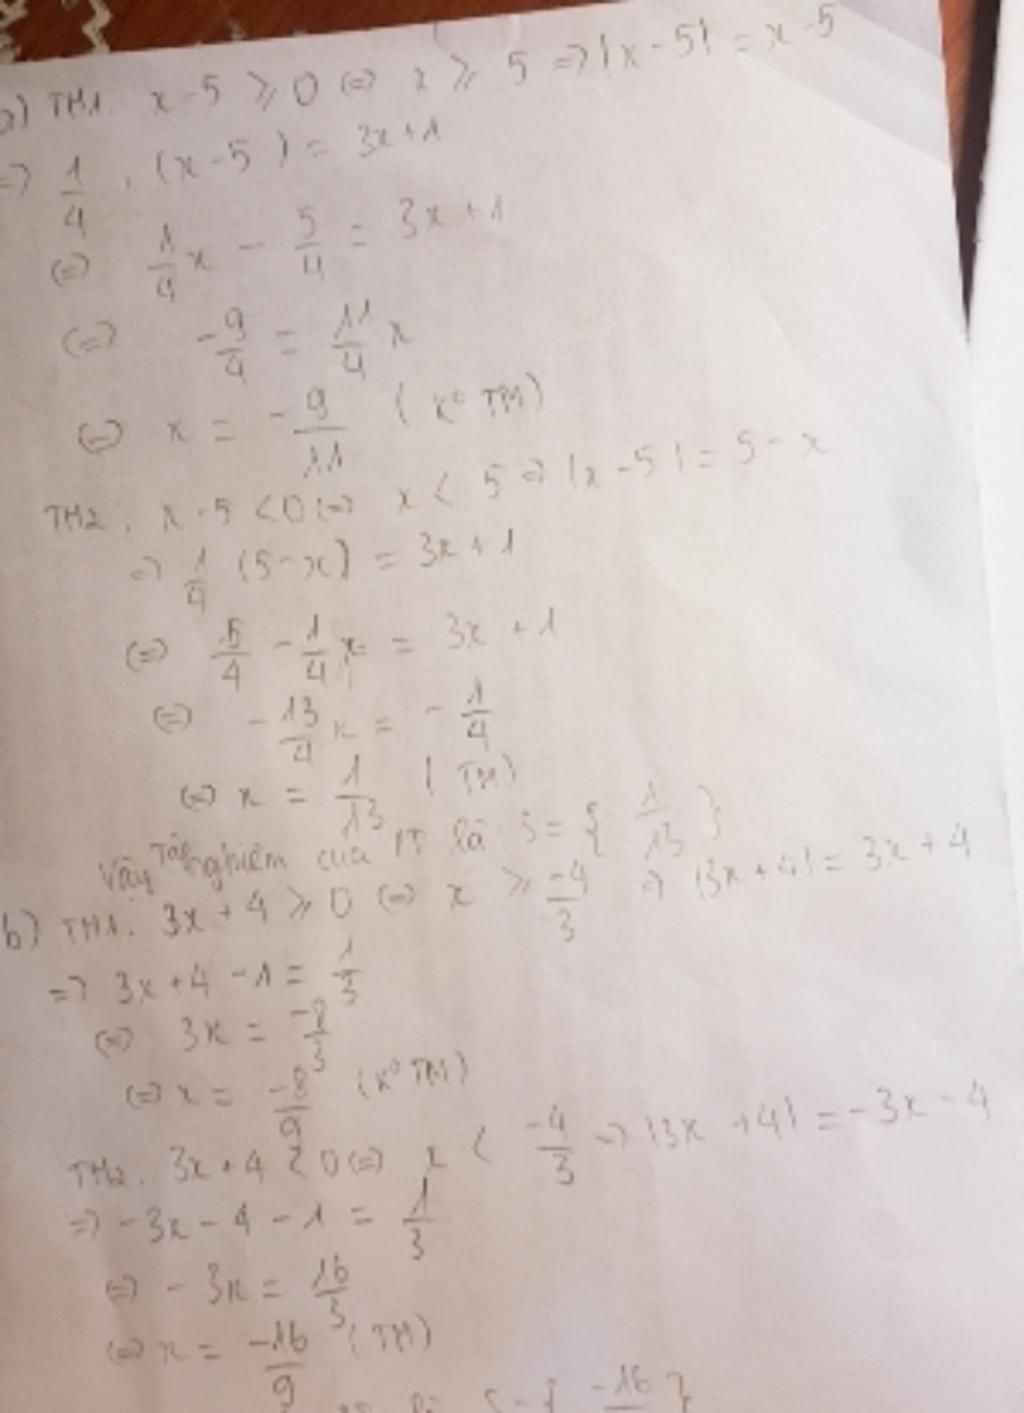 a) TH1. x-5 ≥ 0 <=> x ≥ 5 => |x-5| = x-5
=> 1/4 . (x-5) = 3x+1
<=> 1/4 x - 5/4 = 3x+1
<=> -9/4 = 11/4 x
<=> x = -9/11 (K° TM)
TH2. x-5 < 0 <=> x < 5 => |x-5| = 5-x
=> 1/4 (5-x) = 3x+1
<=> 5/4 - 1/4 x = 3x+1
<=> -13/4 x = -1/4
<=> x = 1/13 (TM)
Vậy Tập nghiệm của PT là S = { 1/13 }
b) TH1. 3x+4 ≥ 0 <=> x ≥ -4/3 => |3x+4| = 3x+4
=> 3x+4-1 = 1/3
<=> 3x = -8/3
<=> x = -8/9 (K° TM)
TH2. 3x+4 < 0 <=> x < -4/3 => |3x+4| = -3x-4
=> -3x-4-1 = 1/3
<=> -3x = 16/3
<=> x = -16/9 (TM)
là S = { -16 }